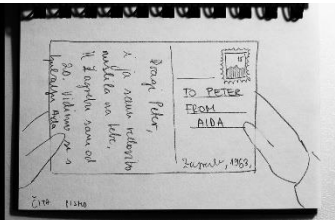 Dragi Peter,
i ja sam
mislila na tebe.
U Zagrebu sam od
20. Vidimo se s
Aida
TO PETER
FROM
AIDA
Zagreb, 1963.
ČITA PISMO